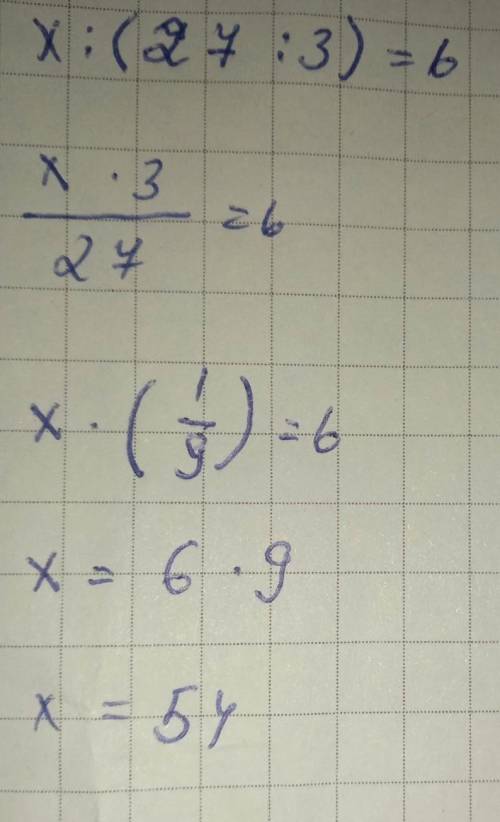 x : (27 : 3) = 6
x · 3 / 27 = 6
x · (1/9) = 6
x = 6 · 9
x = 54